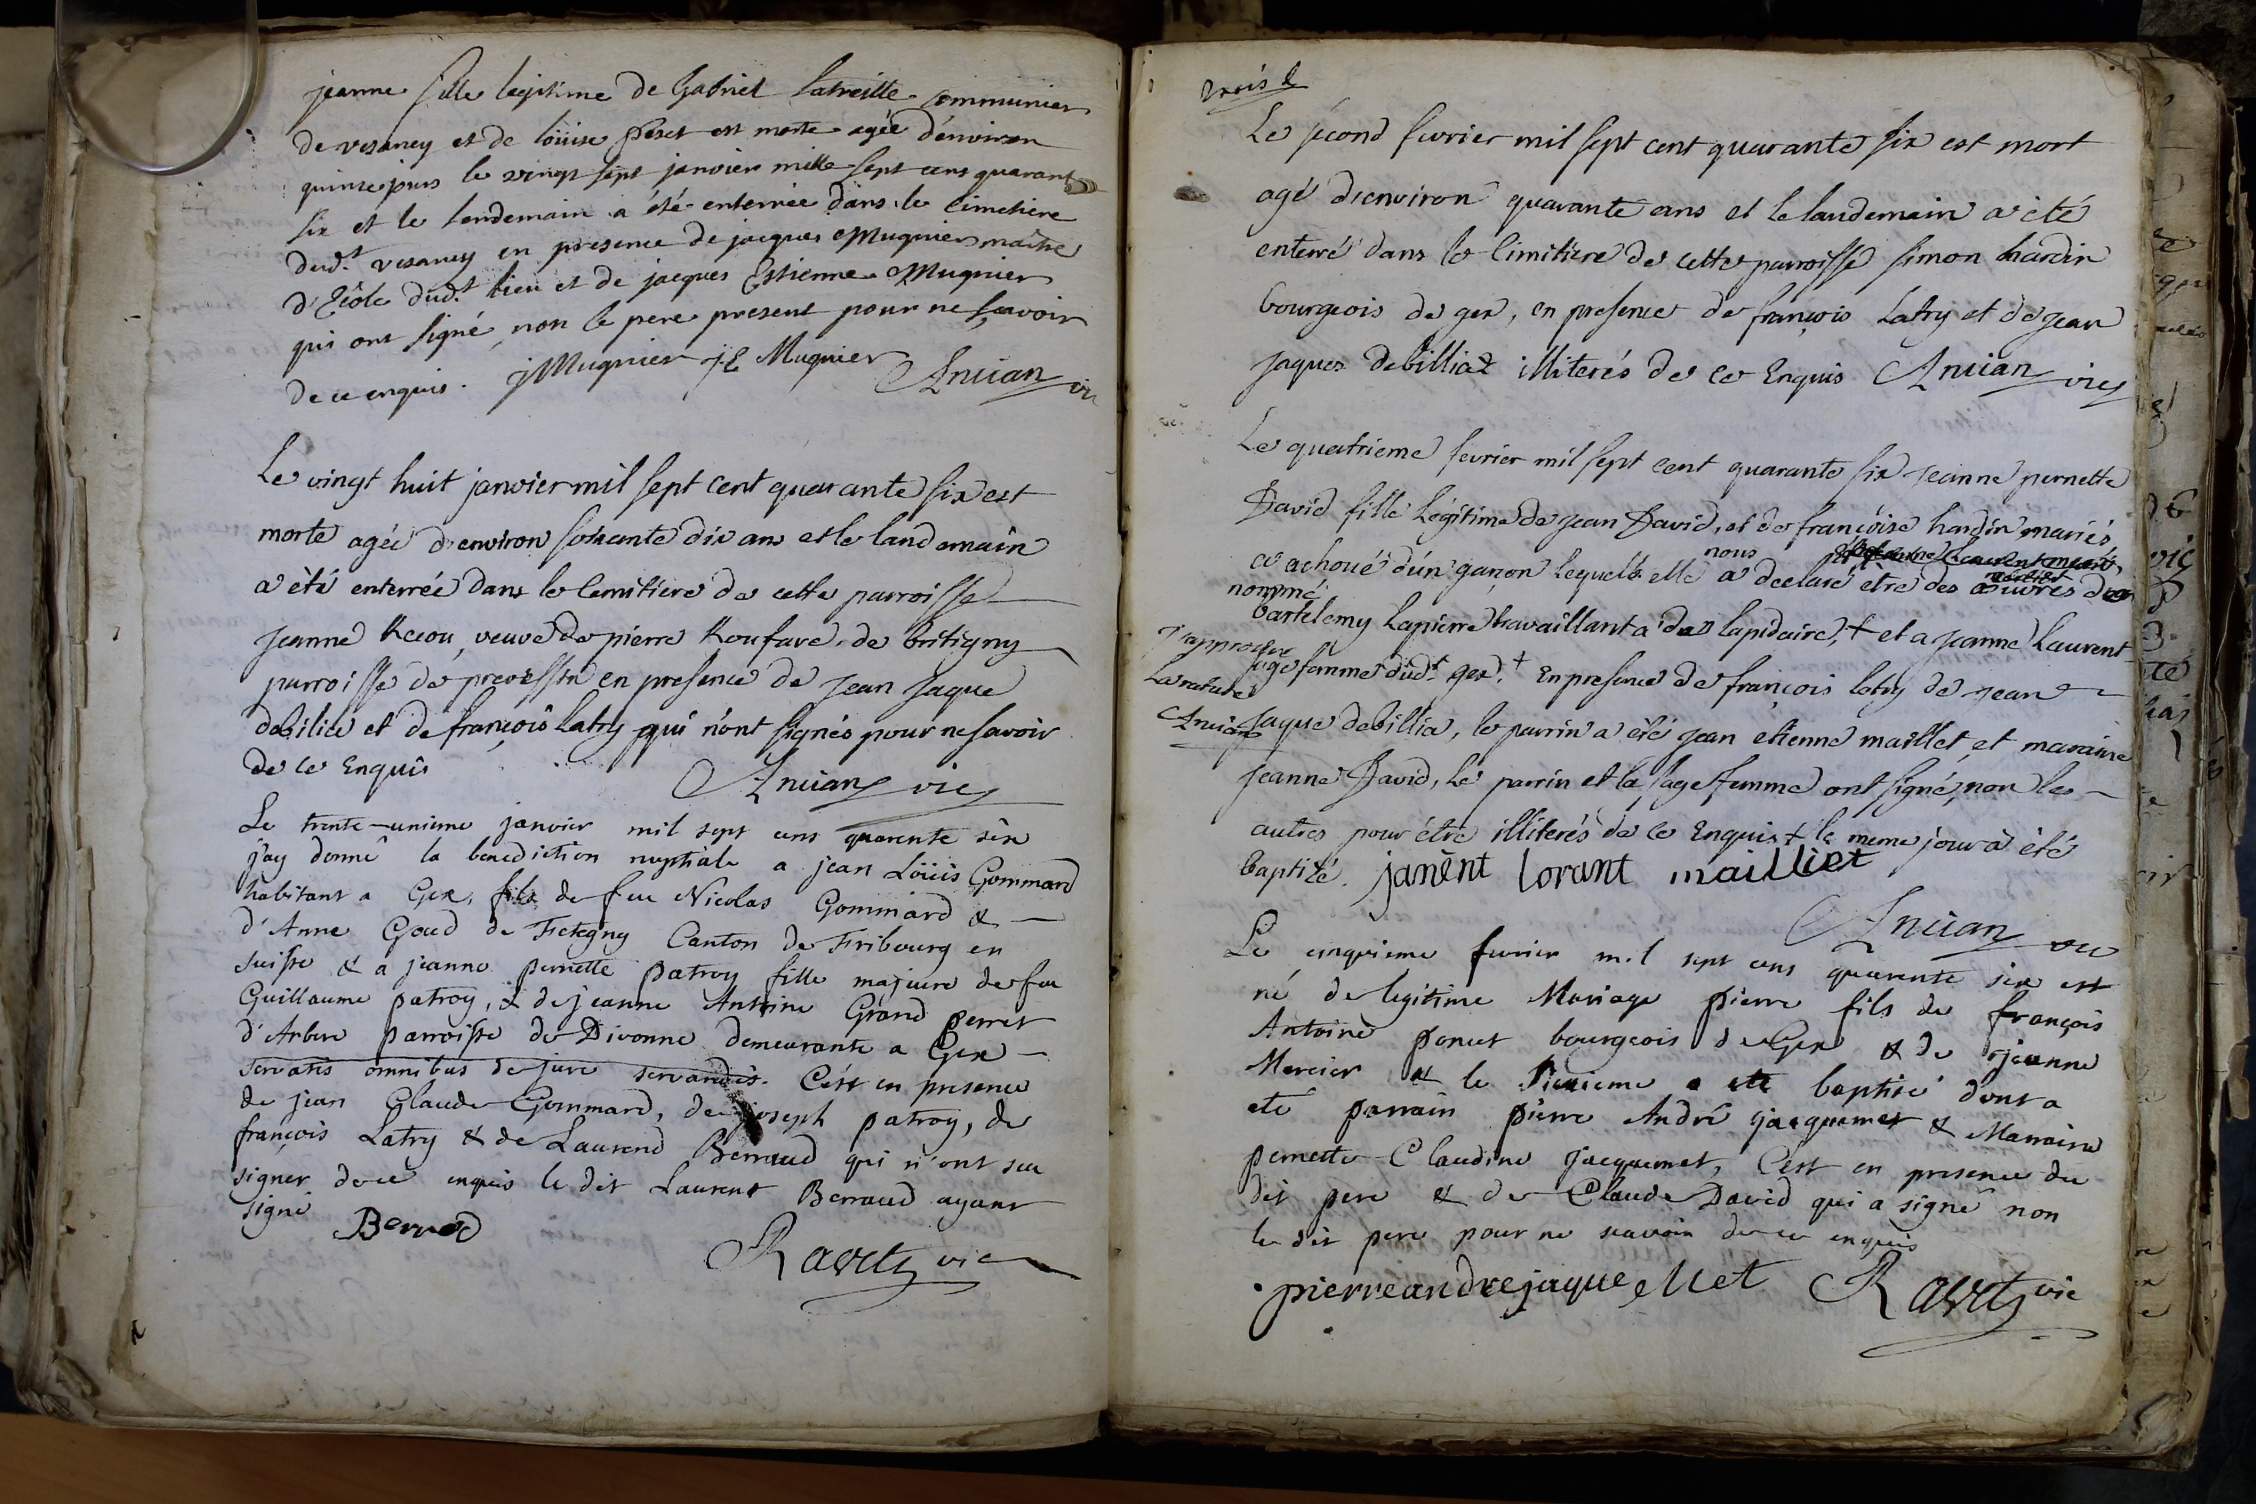 jeanne fille legitime de Gabriel Latreille communier
de vesancy et de loüise est morte agée d'environ
quinse jours le vingt sept janvier mille sept cens quarante
six et le lendemain a été enterrée dans le cimetiere
dud.t vesancy en presence de jacques Mugnier maitre
d'Ecôle dud.t lieu et de jacques Estienne Mugnier
qui ont signé, non le pere present pour ne sçavoir
de ce enquis. jMugnier jE Mugnier Ancian vic
Le vingt huit janvier mil sept cent quarante six est
morte agée d'environ soixante dix ans et le landemain
a èté enterrée dans le cemitiere de cette parroisse
Jeanne veuve de pierre Roufave de britigny
parroisse de prevessin en presence de Jean Jaque
debilia et de françois Latry qui n'ont signés pour ne savoir
de ce Enquis Ancian vic
Le trente-unieme janvier mil sept cens quarente six
j'ay donné la benediction nuptiale a jean Loüis Gommard
habitant a Gex, fils de feu Nicolas Gommard &
d'Anne Goud de Fetigny Canton de Fribourg en
suisse & a jeanne pernette patroy fille majeure de feu
Guillaume patroy, & de jeanne Antoine Grand perret
d'Arbere parroisse de Divonne demeurante a Gex
servatis omnibus de jure servandis. C'est en presence
de jean Glaude Gommard, de joseph patroy, de
françois Latry & de Laurend Berraud qui n'ont sçu
signer de ce enquis le dit Laurent Berraud ayant
signé Berrod
Ravets vic
Le second fevrier mil sept cent quarante six est mort
agé d'environ quarante ans et le landemain a èté
enterré dans le cimitiere de cette parroisse simon hardin
bourgeois de gex, en presence de françois Latry et de Jean
Jaques debilliaz illiterés de ce Enquis Ancian vic
Le quatrieme fevrier mil sept cent quarante six Jeanne pernette
David fille légitime de Jean David, et de françoise hardin mariés,
a achoué d'un garçon lequel elle nous a declaré être des œuvres de
nommé
bartelemy Lapierre travaillant a lapidaire, + et a Jeanne Laurent
J'approuve
sage femme dud.t gex. + En presence de françois latry de Jean
La rature
Ancian
Jaque debillia, le parrin a été jean etienne maillet, et maraine
Jeanne David, le parrin et la sage femme ont signé, non les
autres pour étre illiterés de ce Enquis + le meme jour a été
baptizé. janènt lorant mailliet
Ancian vic
Le cinquieme fevrier mil sept cens quarente six est
né de legitime Mariage pierre fils de françois
Antoine ponçet bourgeois de Gex & de jeanne
Mercier & le sixieme a eté baptisé dont a
eté parrain pierre André jacquemet & Marraine
pernette Claudine jacquemet, C'est en presence du
dit pere & de Claude David qui a signé non
le dit pere pour ne scavoir de ce enquis
pierre andre jaque Met Ravets vic